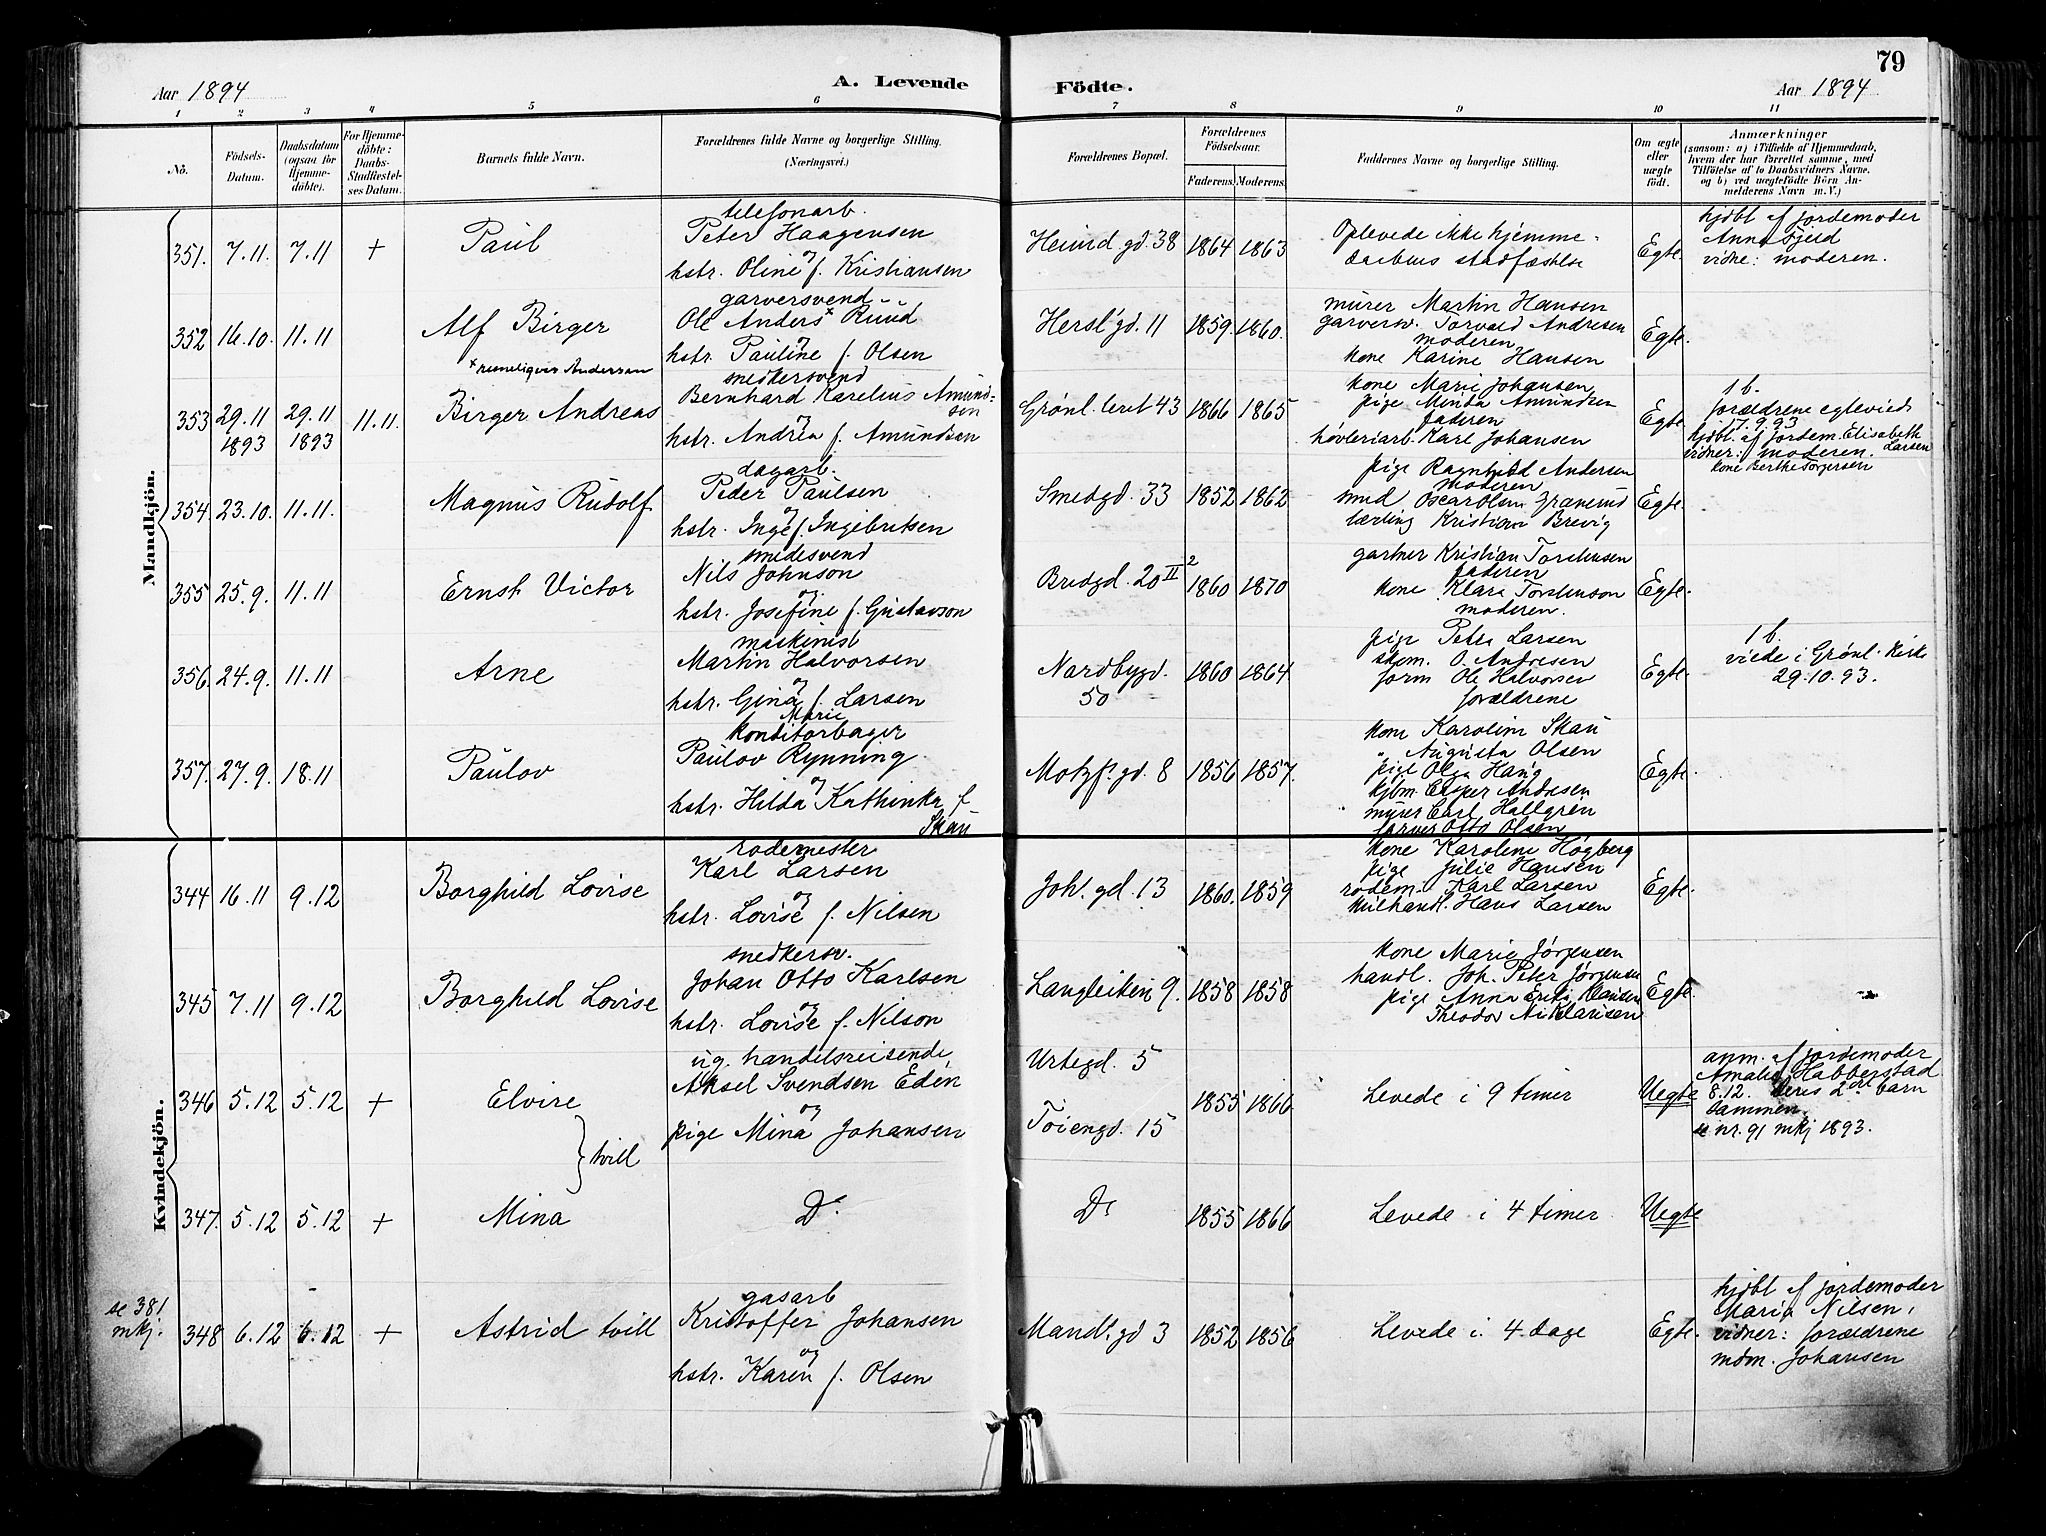 79
Aar 1894
A. Levende
Födte.
Aar 1894
1 2 3 4 5 6 7 8 9 10 11
No.
Födsels-Datum.
Daabsdatum (ogsaa for Hjemmedöbte).
For Hjemmedöbte: Daabs-Stadfæstelses Datum.
Barnets fulde Navn.
Forældrenes fulde Navne og borgerlige Stilling. (Næringsvei.)
Forældrenes Bopæl.
Forældrenes Födselsaar.
Faderens. Moderens.
Faddernes Navne og borgerlige Stilling.
Om ægte eller uægte födt.
Anmærkninger
(saasom: a) i Tilfælde af Hjemmedaab, hvem der har forrettet samme, med Tilföielse af to Daabsvidners Navne, og b) ved uægtefödte Börn Anmelderens Navn m. V.)
Mandkjön.
351. 7.11. 7.11 + Paul
telefonarb.
Peter Haagensen
og
hstr. Oline f. Kristiansen
Heimd gd. 38 1864 1863
Oplevede ikke hjemme-
daabens stadfæstelse
Egte.
hjdbt af jordemoder
Anna Fjeld
vidne: moderen.
352 16.10. 11.11 Alf Birger
garversvend
Ole Anders x Ruud
og
hstr. Pauline f. Olsen
x rimeligvis Anderssen
Hersl. gd. 11 1859. 1860.
murer Martin Hansen
garversv. Torvald Andresen
moderen
kone Karine Hansen
Egte.
353 29.11 1893 29.11 1893 11.11. Birger Andreas
snedkersvend
Bernhard Karelius Amundsen
og
hstr. Andrea f. Amundsen
Grönl. leret 43 1866 1865
kone Marie Johansen
pige Minda Amundsen
faderen
høvleriarb. Karl Johansen
Egte.
1 b.
forældrene egteviede
7.9.93
hjdbt. af jordem. Elisabeth Larsen
vidner: moderen.
kone Berthe Torgersen
354 23.10. 11.11. Magnus Rudolf
dagarb.
Peder Paulsen
og
hstr. Inge f. Ingebretsen
Smedgd. 33 1852 1862
pige Ragnhild Andersen
moderen
smed Oscar Olsen
lærling Kristian Brevig
Egte.
355 25.9. 11.11 Ernst Victor
smedesvend
Nils Johnson
og
hstr. Josefine f. Gustavson
Bredgd. 20 II 2 1860 1870
gartner Kristian Torstensen
faderen
kone Klara Torstenson
moderen.
Egte.
356. 24.9. 11.11 Arne
maskinist
Martin Halvorsen
og
hstr. Gina f. Larsen
Marie
Nordbygd. 50 1860 1864
pige Petra Larsen
skom. O. Andresen
form Ole Halvorsen
forældrene
Egte.
1 b.
viede i Grönl. Kirke
29.10.93.
357. 27.9. 18.11 Paulov
konditorbager
Paulov Rynning.
og
hstr. Hilda Kathinka f.
Skau
Motzf. gd. 8 1856 1857.
kone Karoline Skau
" Augusta Olsen
pige Olga Haug
kjbm. Casper Andresen
murer Carl Hallgren
farver Otto Olsen
Egte.
Kvindekjön.
344 16.11 9.12 Borghild Lovise
rodemester
Karl Larsen
og
hstr. Lovise f. Nilsen
Joh. gd. 13 1860. 1859
kone Karolene Högberg
pige Julie Hansen
rodem. Karl Larsen
Hans Larsen
Egte.
345 7.11 9.12 Borghild Lovise
snedkersv.
Johan Otto Karlsen
og
hstr. Lovise f. Nilson
Langleiken 9. 1858 1858
kone Marie Jörgensen
handl. Joh. Peter Jörgensen
pige Anna Klausen
Theodor Klausen
Egte.
346 5.12 5.12 + Elvire
ug. handelsreisende
Aksel Svendsen Edén
og
pige Mina Johansen
} tvill
Urtegd. 5
Töiengd. 15
1855 1866
Levede i 9 timer
Uegte
anm. af jordemoder
Amalie Habberstad
8.12. Deres 2det barn
sammen.
se nr. 91 mkj 1893.
347. 5.12 5.12 + Mina
Do
Do 1855 1866
Levede i 4 timer
Uegte
se 381
mkj.
348 6.12 6.12 + Astrid tvill
gasarb
Kristoffer Johansen
og
hstr. Karen f. Olsen
Mandl. gd 3 1852 1856
Levede i 4 dage
Egte.
hjdbt af jordemoder
Maria Nilsen,
vidner: forældrene
mdm. Johansen